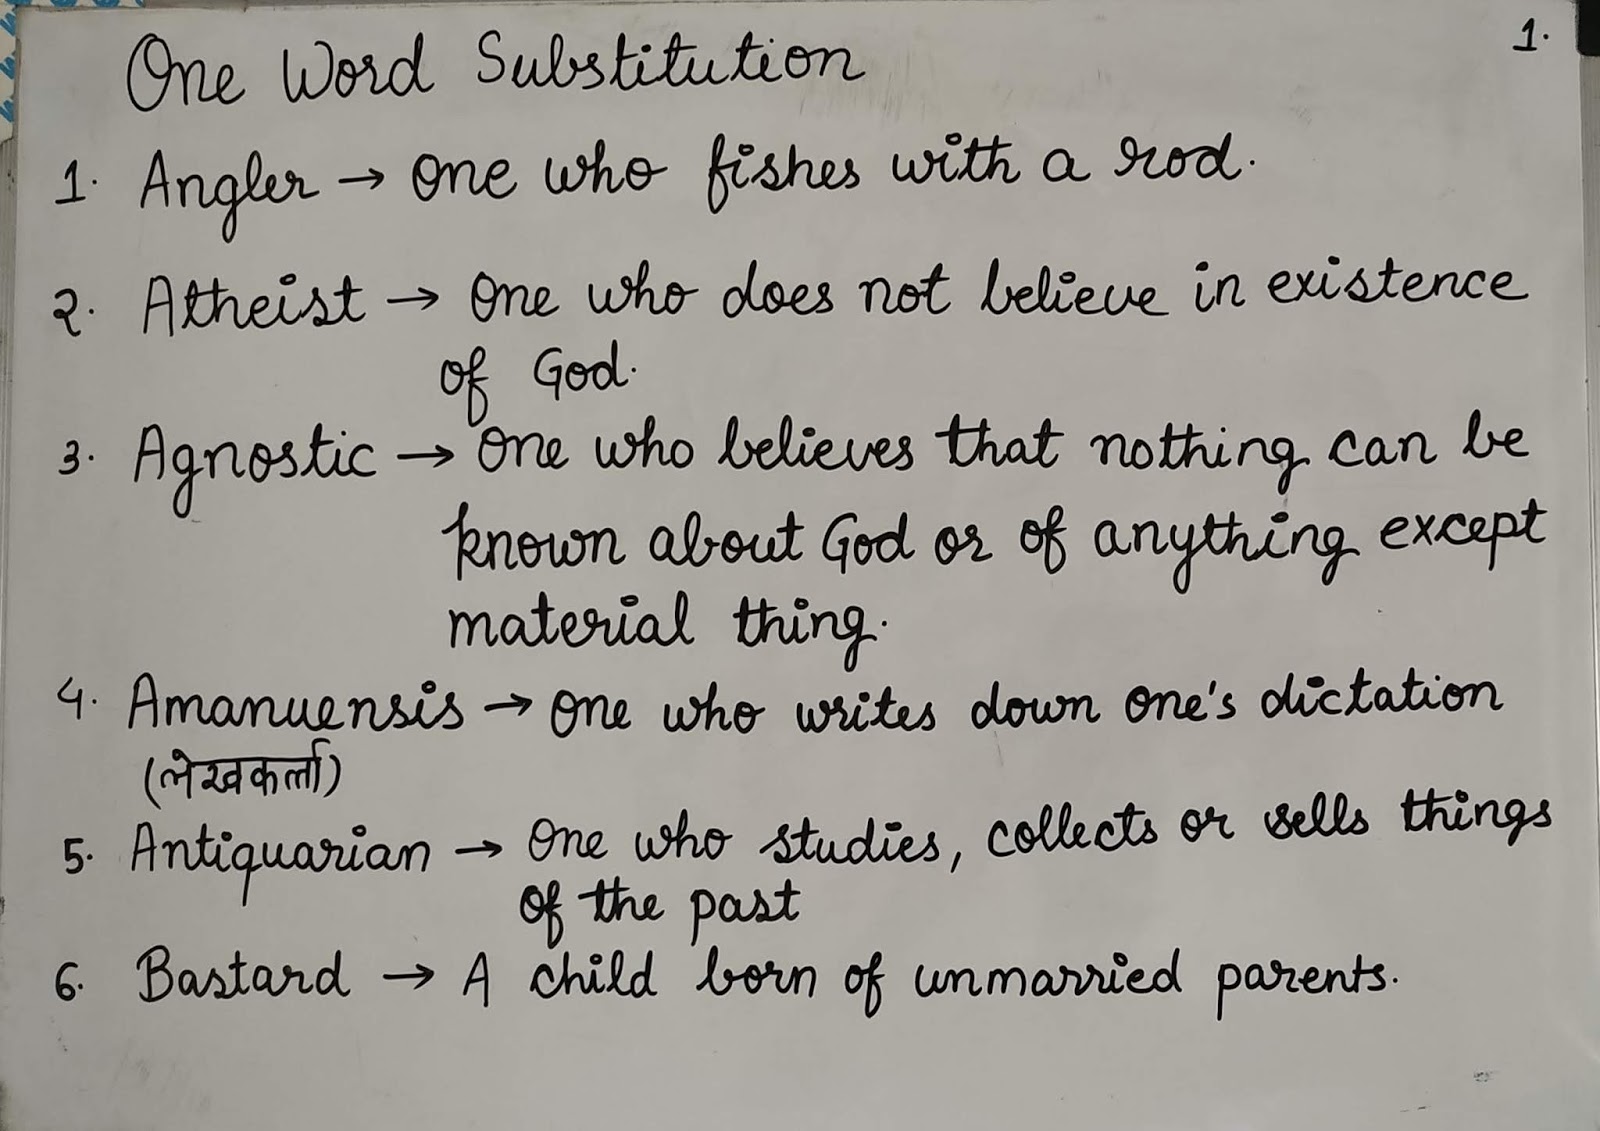 1.
One Word Substitution
1. Angler → One who fishes with a rod.
2. Atheist → One who does not believe in existence
of God.
3. Agnostic → One who believes that nothing can be
known about God or of anything except
material thing.
4. Amanuensis → One who writes down one's dictation
(लेखकर्ता)
5. Antiquarian → One who studies, collects or sells things
of the past
6. Bastard → A child born of unmarried parents.